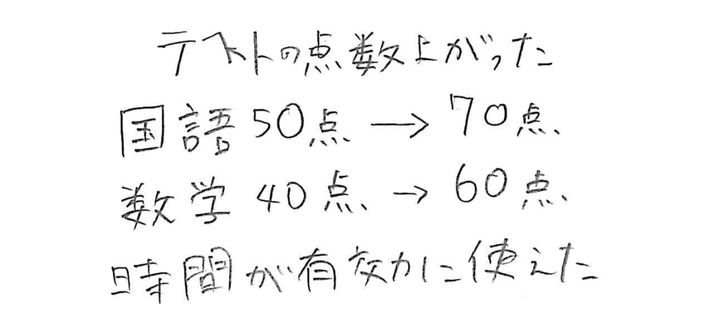 テストの点数上がった
国語 50点 → 70点
数学 40点 → 60点
時間が有効に使えた